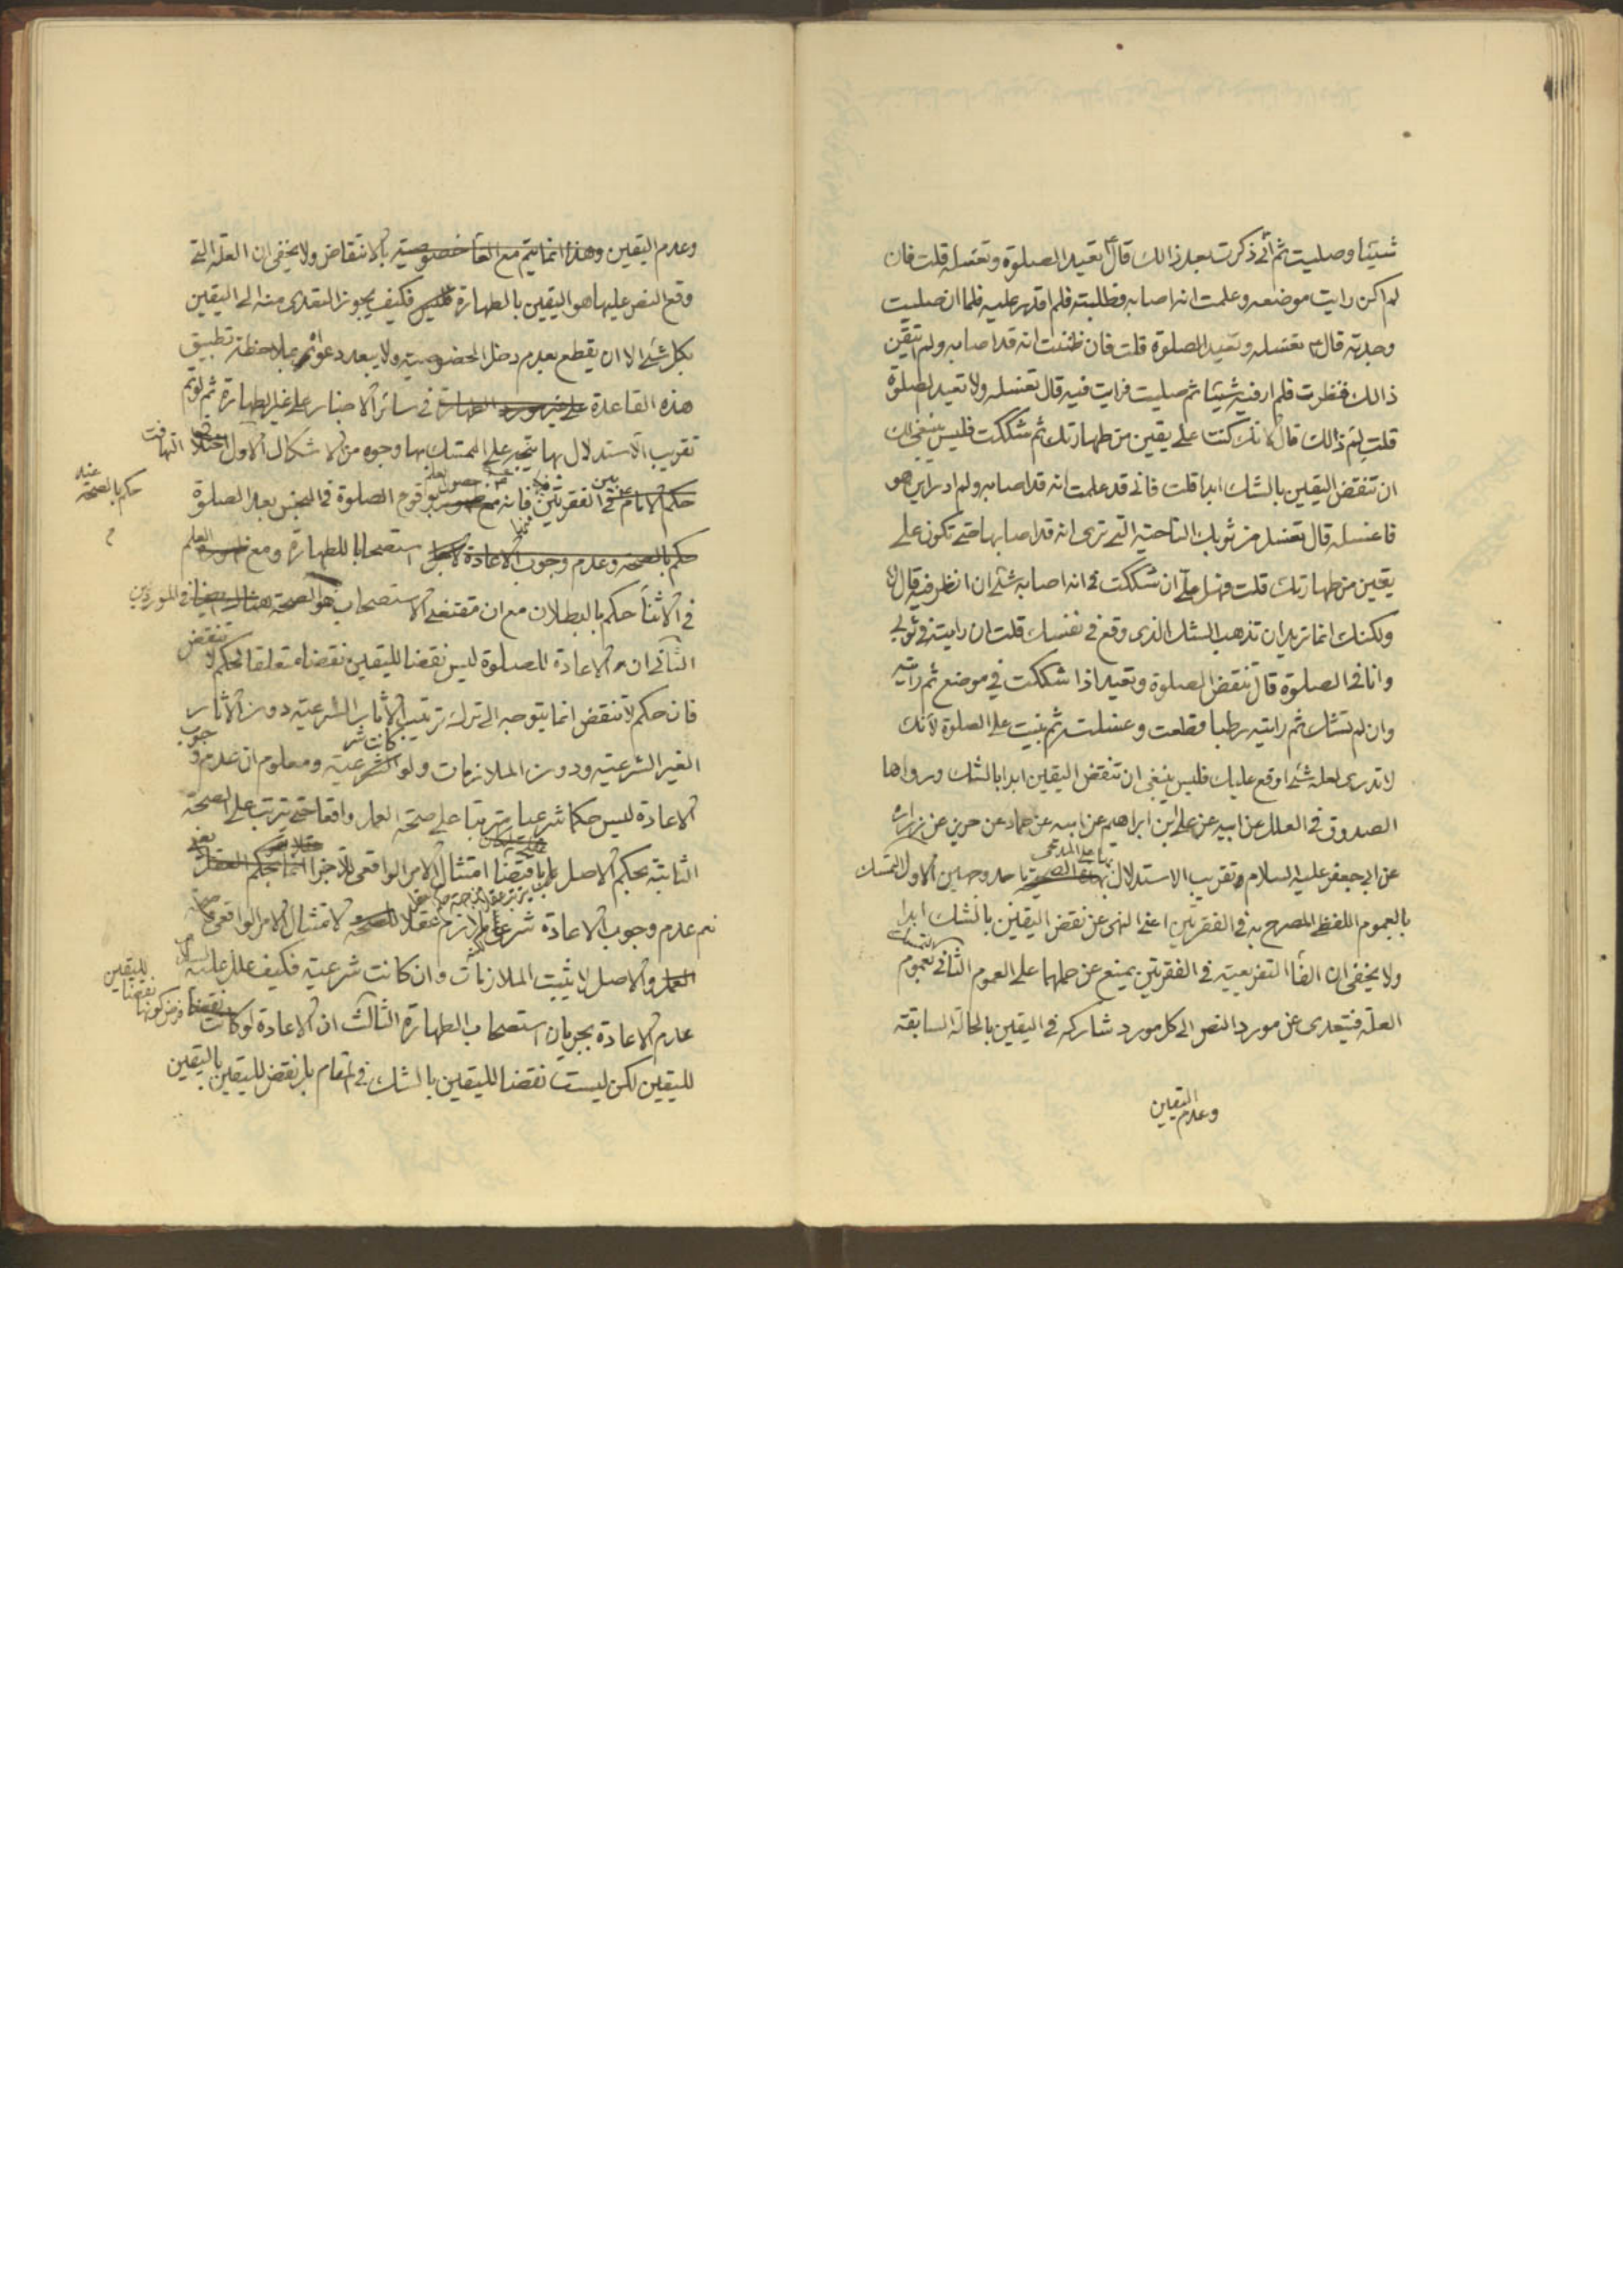 شيئا وصليت ثم اني ذكرت بعد ذالك قال تعيد الصلوة وتغسله قلت فان
لم اكن رايت موضعه وعلمت انه اصابه فطلبته فلم اقدر عليه فلما ان صليت
وجدته قال تغسله وتعيد الصلوة قلت فان ظننت انه قد اصابه ولم اتيقن
ذالك فنظرت فلم ار فيه شيئا ثم صليت فرايت فيه قال تغسله ولا تعيد الصلوة
قلت لِمَ ذالك قال لانك كنت على يقين من طهارتك ثم شككت فليس ينبغي لك
ان تنقض اليقين بالشك ابدا قلت فاني قد علمت انه قد اصابه ولم ادر اين هو
فاغسله قال تغسل من ثوبك الناحية التي ترى انه قد اصابها حتى تكون على
يقين من طهارتك قلت فهل علىّ ان شككت في انه اصابه شئ ان انظر فيه قال لا
ولكنك انما تريد ان تذهب الشك الذى وقع في نفسك قلت ان رايته في ثوبي
وانا في الصلوة قال تنقض الصلوة وتعيد اذا شككت في موضع ثم رايته
وان لم تشك ثم رايته رطبا قطعت وغسلت ثم بنيت على الصلوة لانك
لا تدرى لعله شئ اوقع عليك فليس ينبغي ان تنقض اليقين ابدا بالشك ورواها
الصدوق في العلل عن ابيه عن علي ابن ابراهيم عن ابيه عن حماد عن حريز عن زرارة
عن ابي جعفر عليه السلام وتقريب الاستدلال بها على المدعى باحد وجهين الاول التمسك
بالعموم اللفظي المصرح به في الفقرتين اعني النهى عن نقض اليقين بالشك ابدا
ولا يخفى ان الفاء التفريعية في الفقرتين يمنع عن حملهما على العموم الثاني التمسك بعموم
العلة فيتعدى عن مورد النص الى كل مورد شاركه في اليقين بالحالة السابقة
وعدم اليقين
وعدم اليقين وهذا انما يتم مع الغاء خصوصية بالانتقاض ولا يخفى ان العلة التي
وقع النص عليها هو اليقين بالطهارة فليس فكيف يجوز التعدى منه الى اليقين
بكل شئ الا ان يقطع بعدم دخل الخصوصية ولا يبعد دعوائه بملاحظة تطبيق
هذه القاعدة على غير مورد الطهارة في سائر الاخبار على غير الطهارة ثم لو تم
تقريب الاستدلال بها يتجه على المتمسك بها وجوه من الاشكال الاول التهافت
حكم الامام في بين الفقرتين فانه مع حصول العلم بوقوع الصلوة في النجس بعد الصلوة
حكم بالصحة
حكم بالصحة وعدم وجوب الاعادة استصحابا للطهارة ومع العلم
في الاثناء حكم بالبطلان مع ان مقتضى الاستصحاب هو الصحة في الموردين
الثاني ان الاعادة للصلوة ليس نقضا لليقين نقضا متعلقا لحكم لا تنقض
فان حكم لا تنقض انما يتوجه الى ترك ترتيب الاثار الشرعية دون الاثار
الغير الشرعية ودون الملازمات ولو كانت شرعية ومعلوم ان عدم وجوب
الاعادة ليس حكما شرعيا مترتبا على صحة العمل واقعا حتى يترتب على الصحة
الثابتة بحكم الاصل امتثال الامر الواقعى للاجزاء
نعم عدم وجوب الاعادة شرعا ملازم عقلا لامتثال الامر الواقعى
والاصل لا يثبت الملازمات وان كانت شرعية فكيف علل عليه السلام
عدم الاعادة بجريان استصحاب الطهارة الثالث ان الاعادة لو كانت نقضا
لليقين
لليقين لكن ليست نقضا لليقين بالشك في المقام بل نقض لليقين باليقين